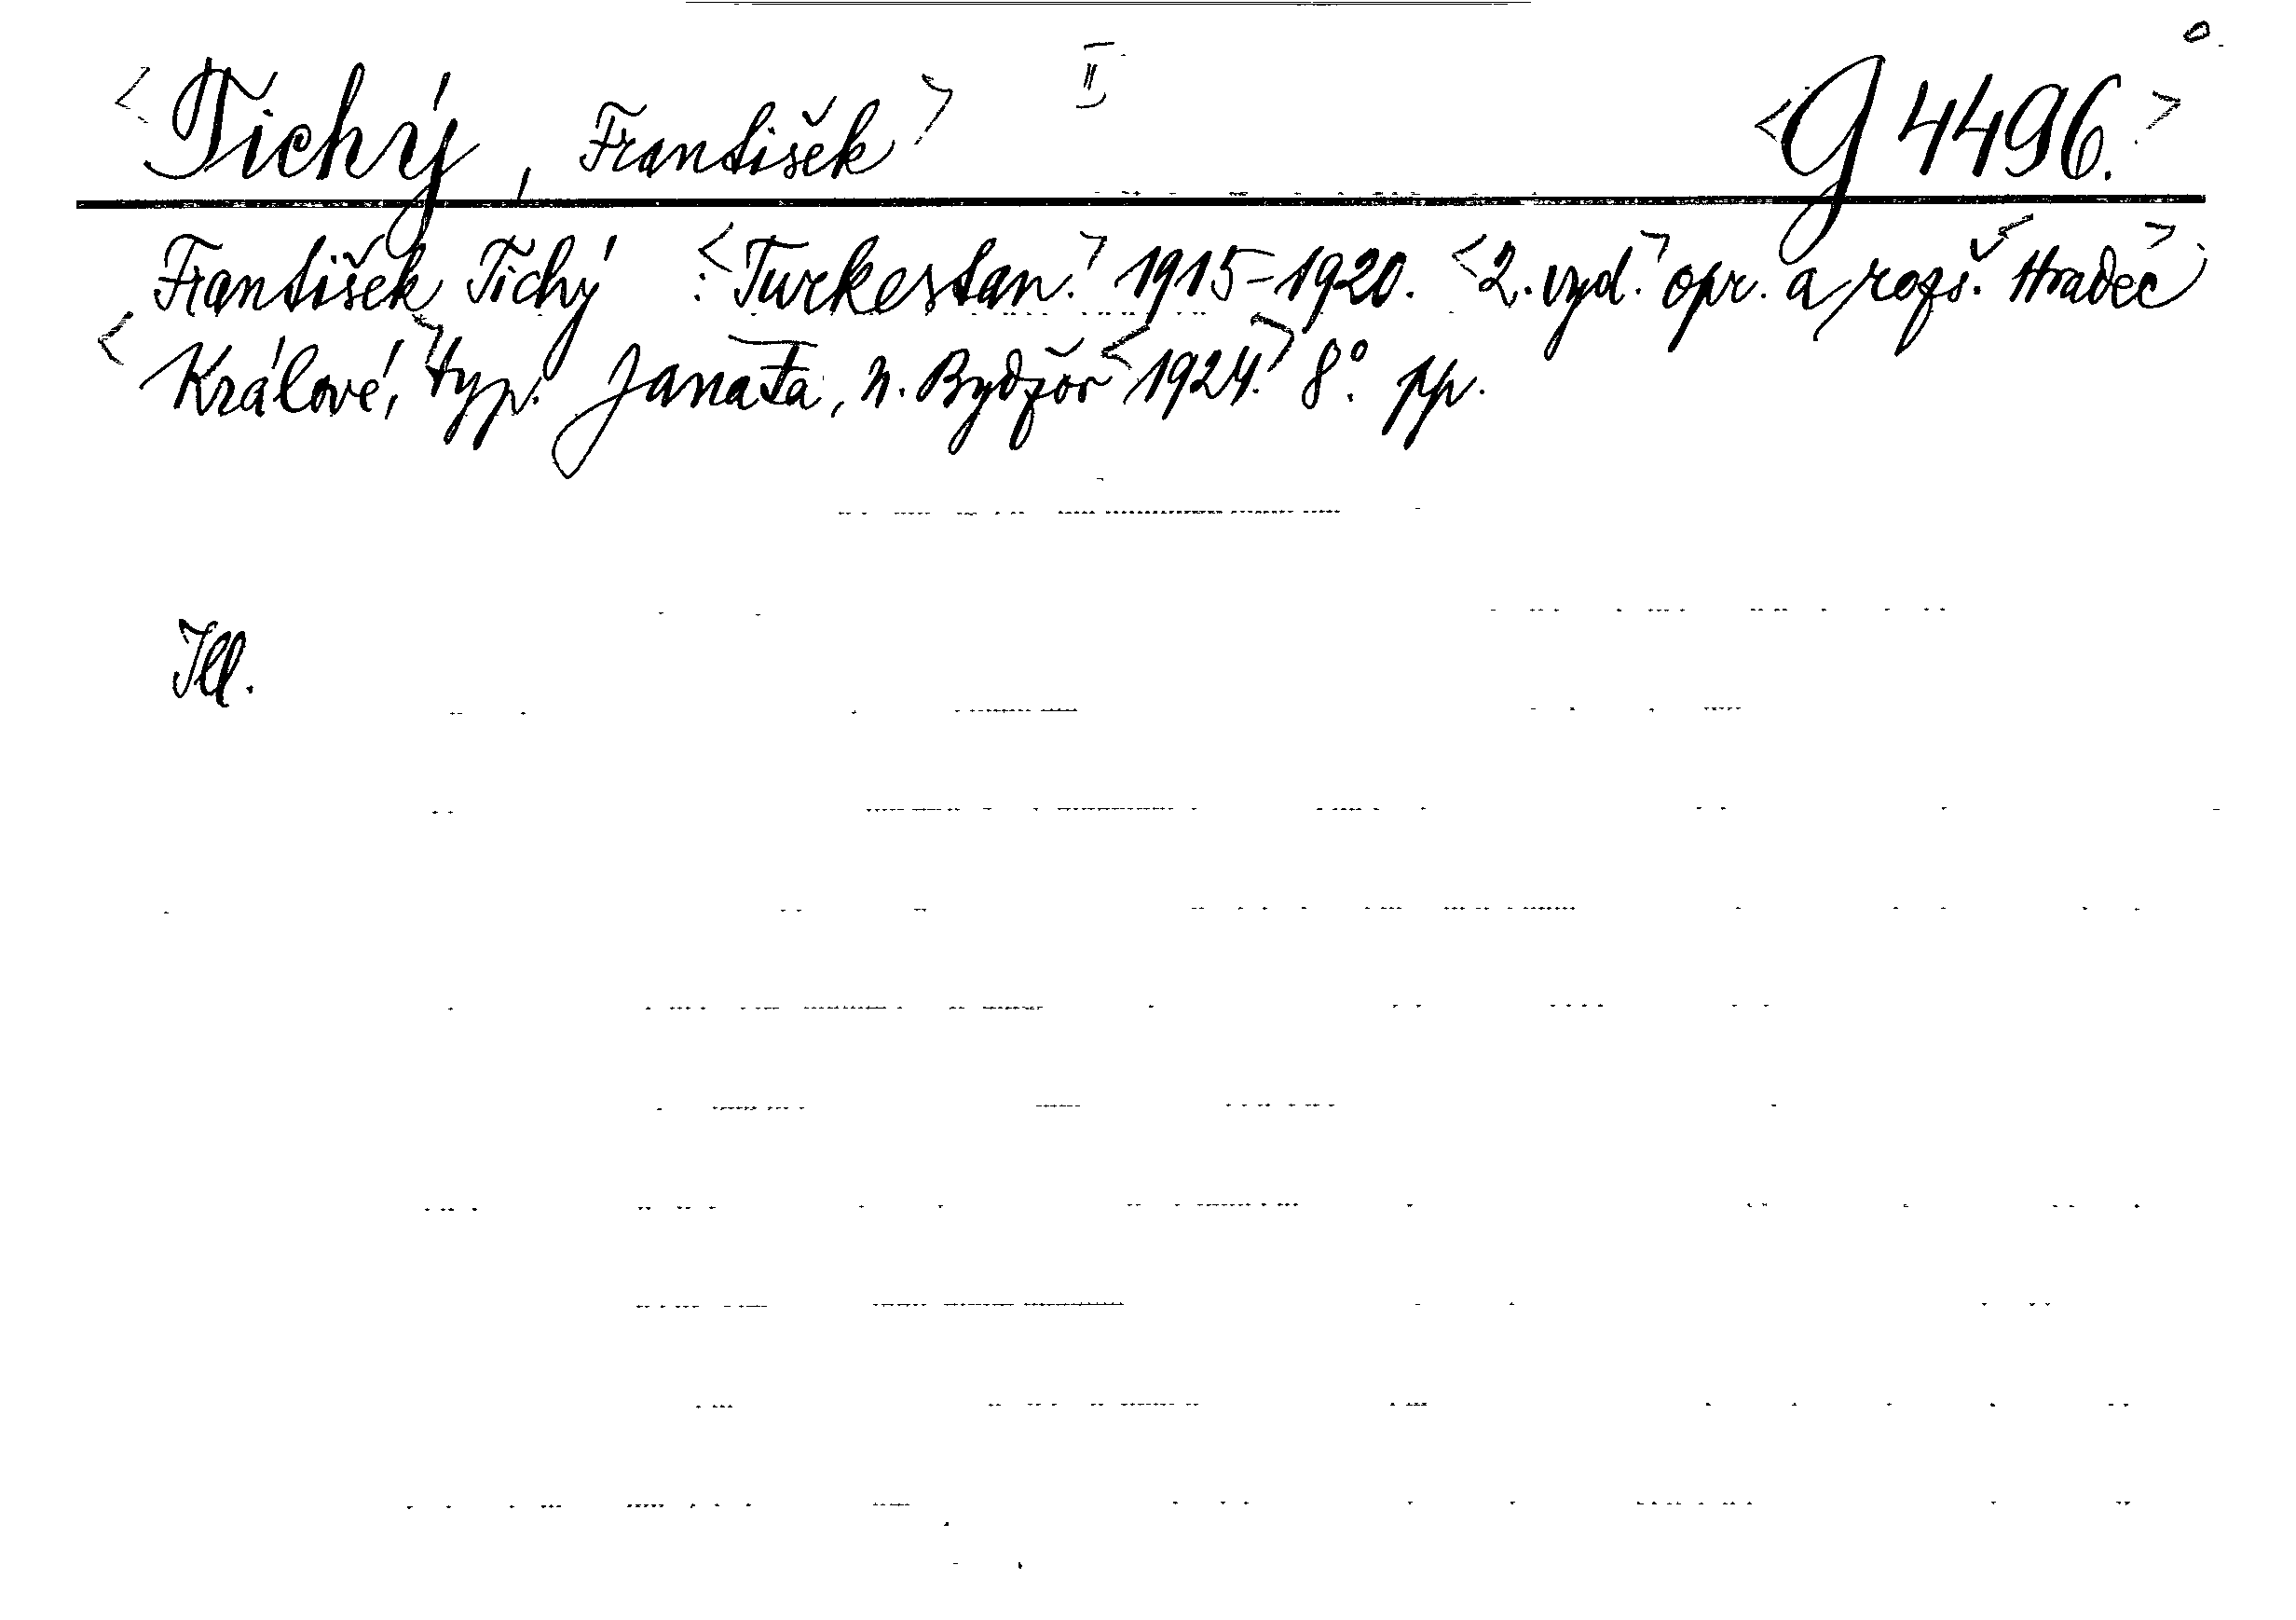 <Tichý, František> II <G 4496.>
František Tichý : <Turkestan.> 1915-1920. <2. vyd.> opr. a rozš. <Hradec>
<Králové,> typ. Janata, N. Bydžov <1924.> 8°. pp.
Ill.